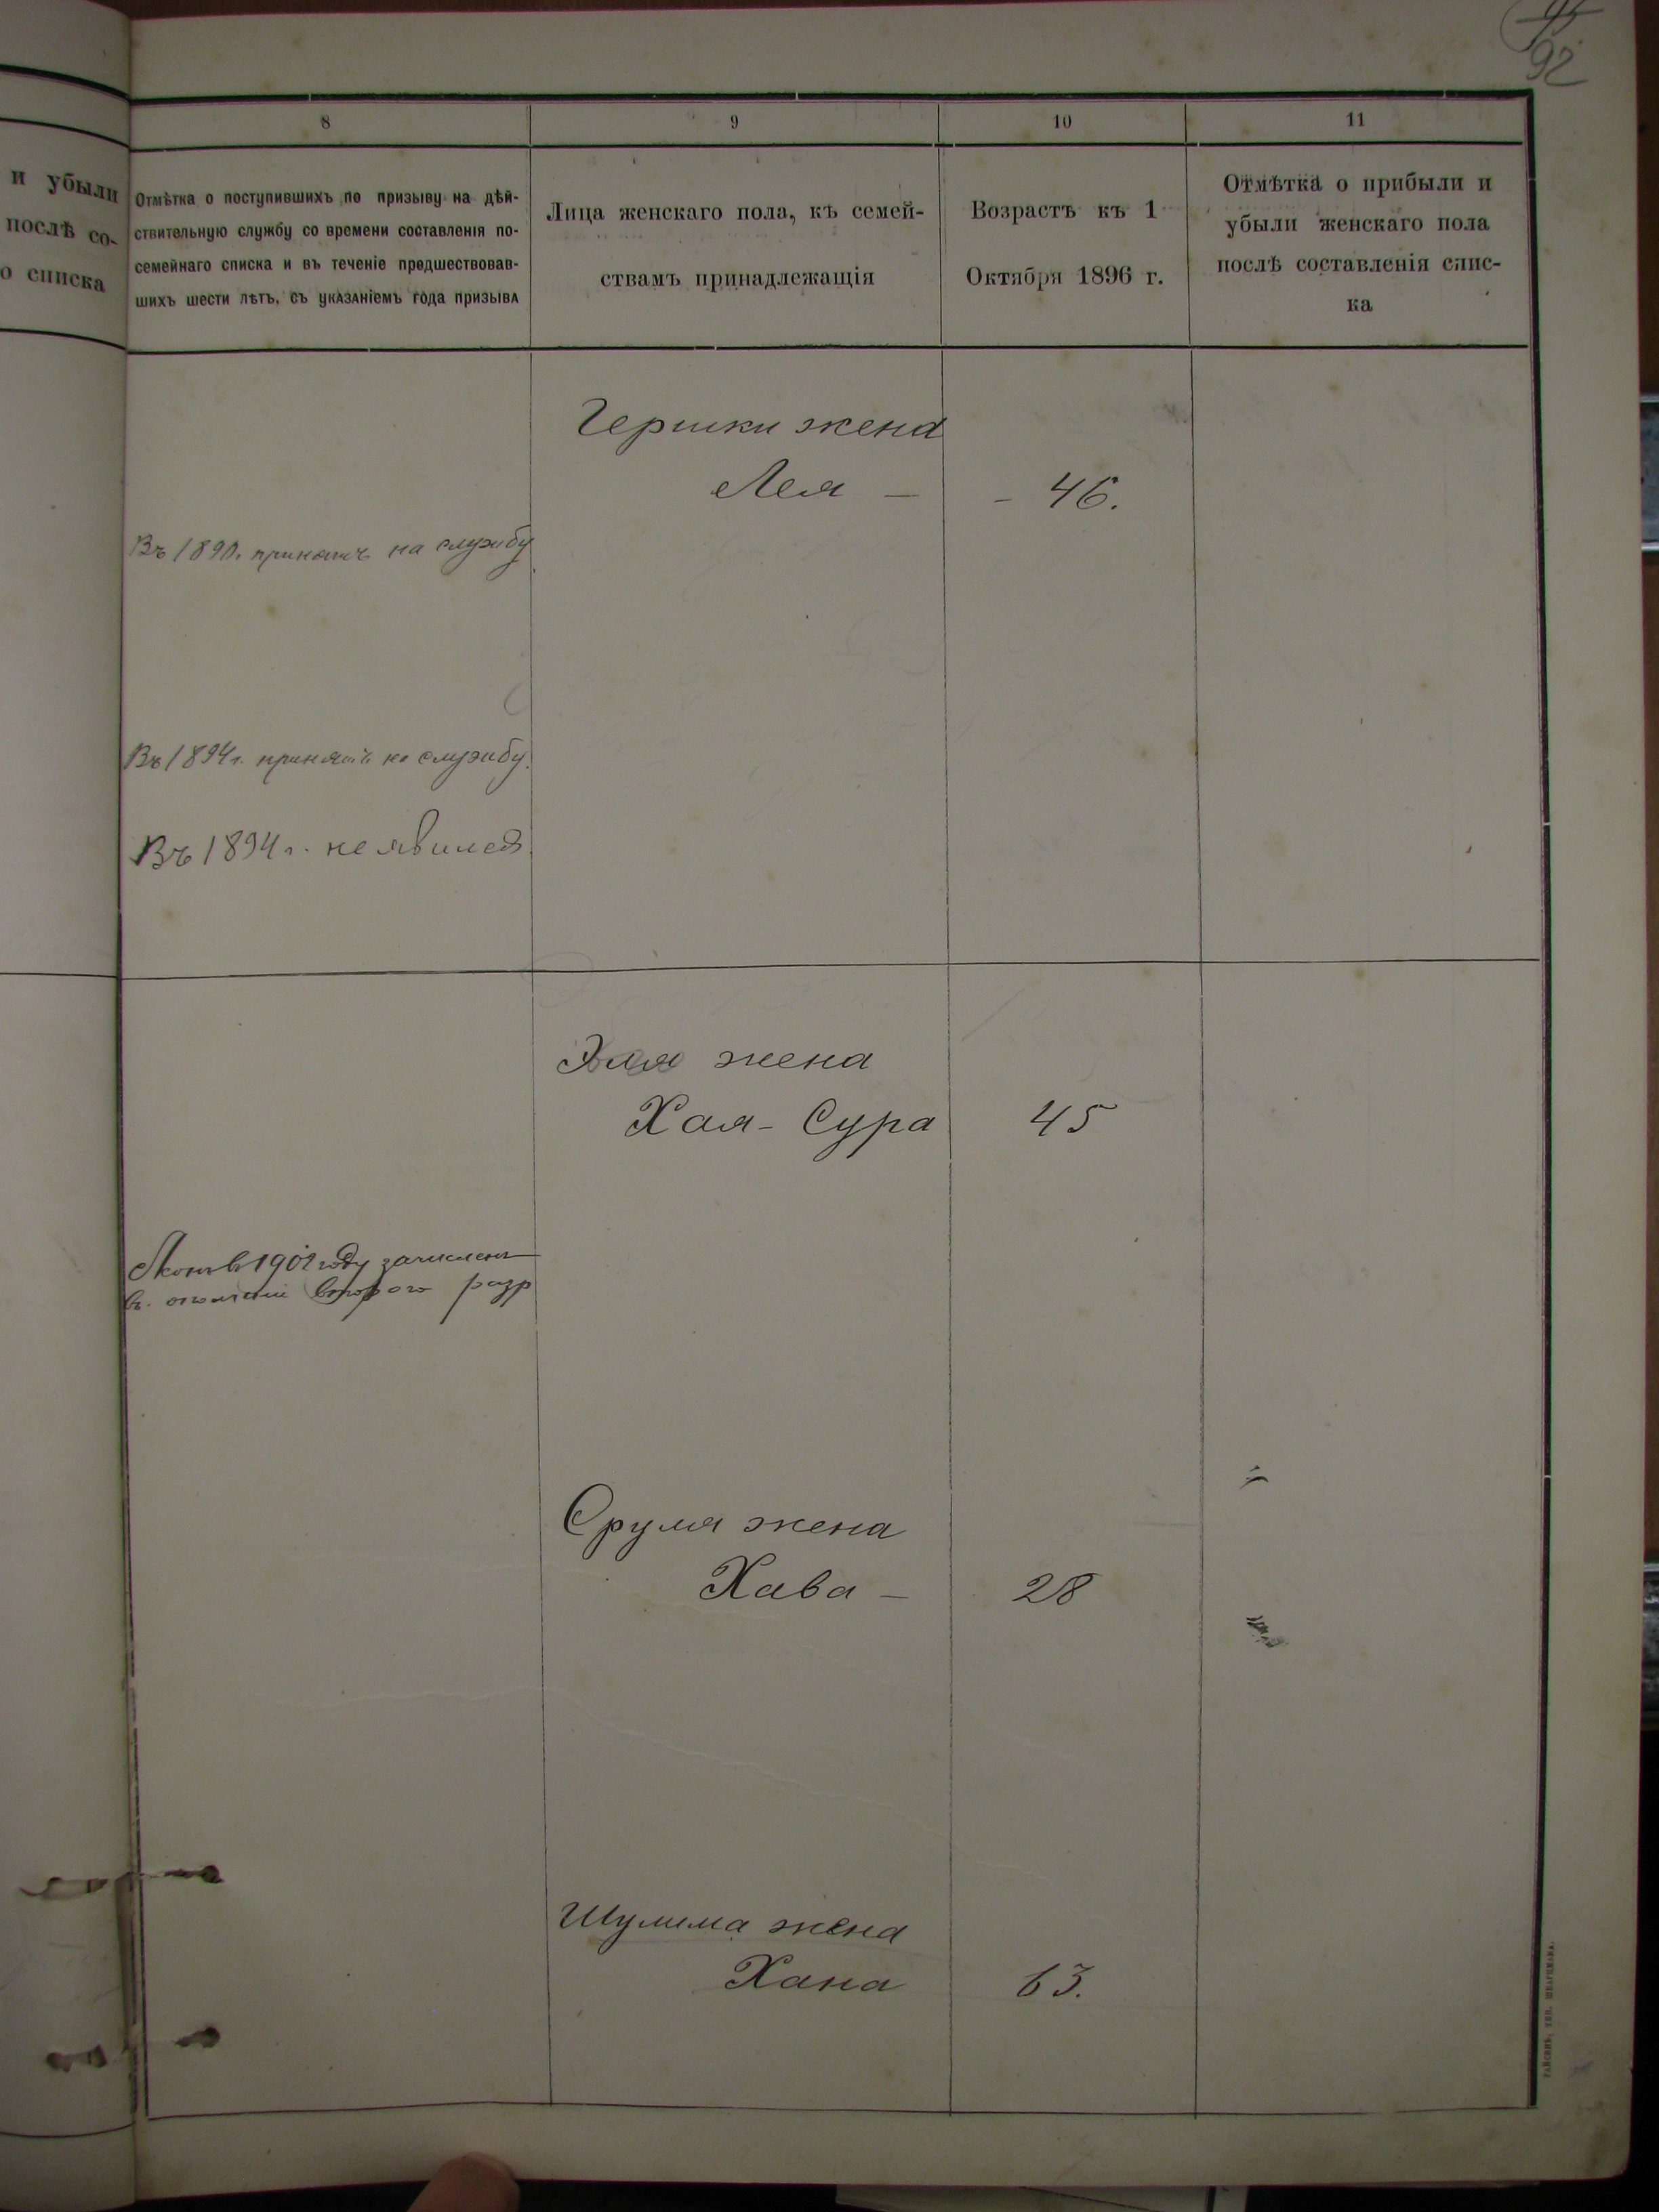 92
8
9
10
11
и убыли
послѣ со-
о списка
Отмѣтка о поступившихъ по призыву на дѣй-
ствительную службу со времени составленія по-
семейнаго списка и въ теченіе предшествовав-
шихъ шести лѣтъ, съ указаніемъ года призыва
Лица женскаго пола, къ семей-
ствамъ принадлежащія
Возрастъ къ 1
Октября 1896 г.
Отмѣтка о прибыли и
убыли женскаго пола
послѣ составленія спис-
ка
Гершки жена
Лея — - 46.
Въ 1890. принятъ на службу
Въ 1894 г. принятъ на службу.
Въ 1894 г. не явился
Эля жена
Хая - Сура 45
в 1901 году зачисленъ
въ ополченіе второго разр
Срумя жена
Хава — 28
Шулима жена
Хана 63.
ГАЙСИНЪ, ТИП. ШВАРЦМАНА.